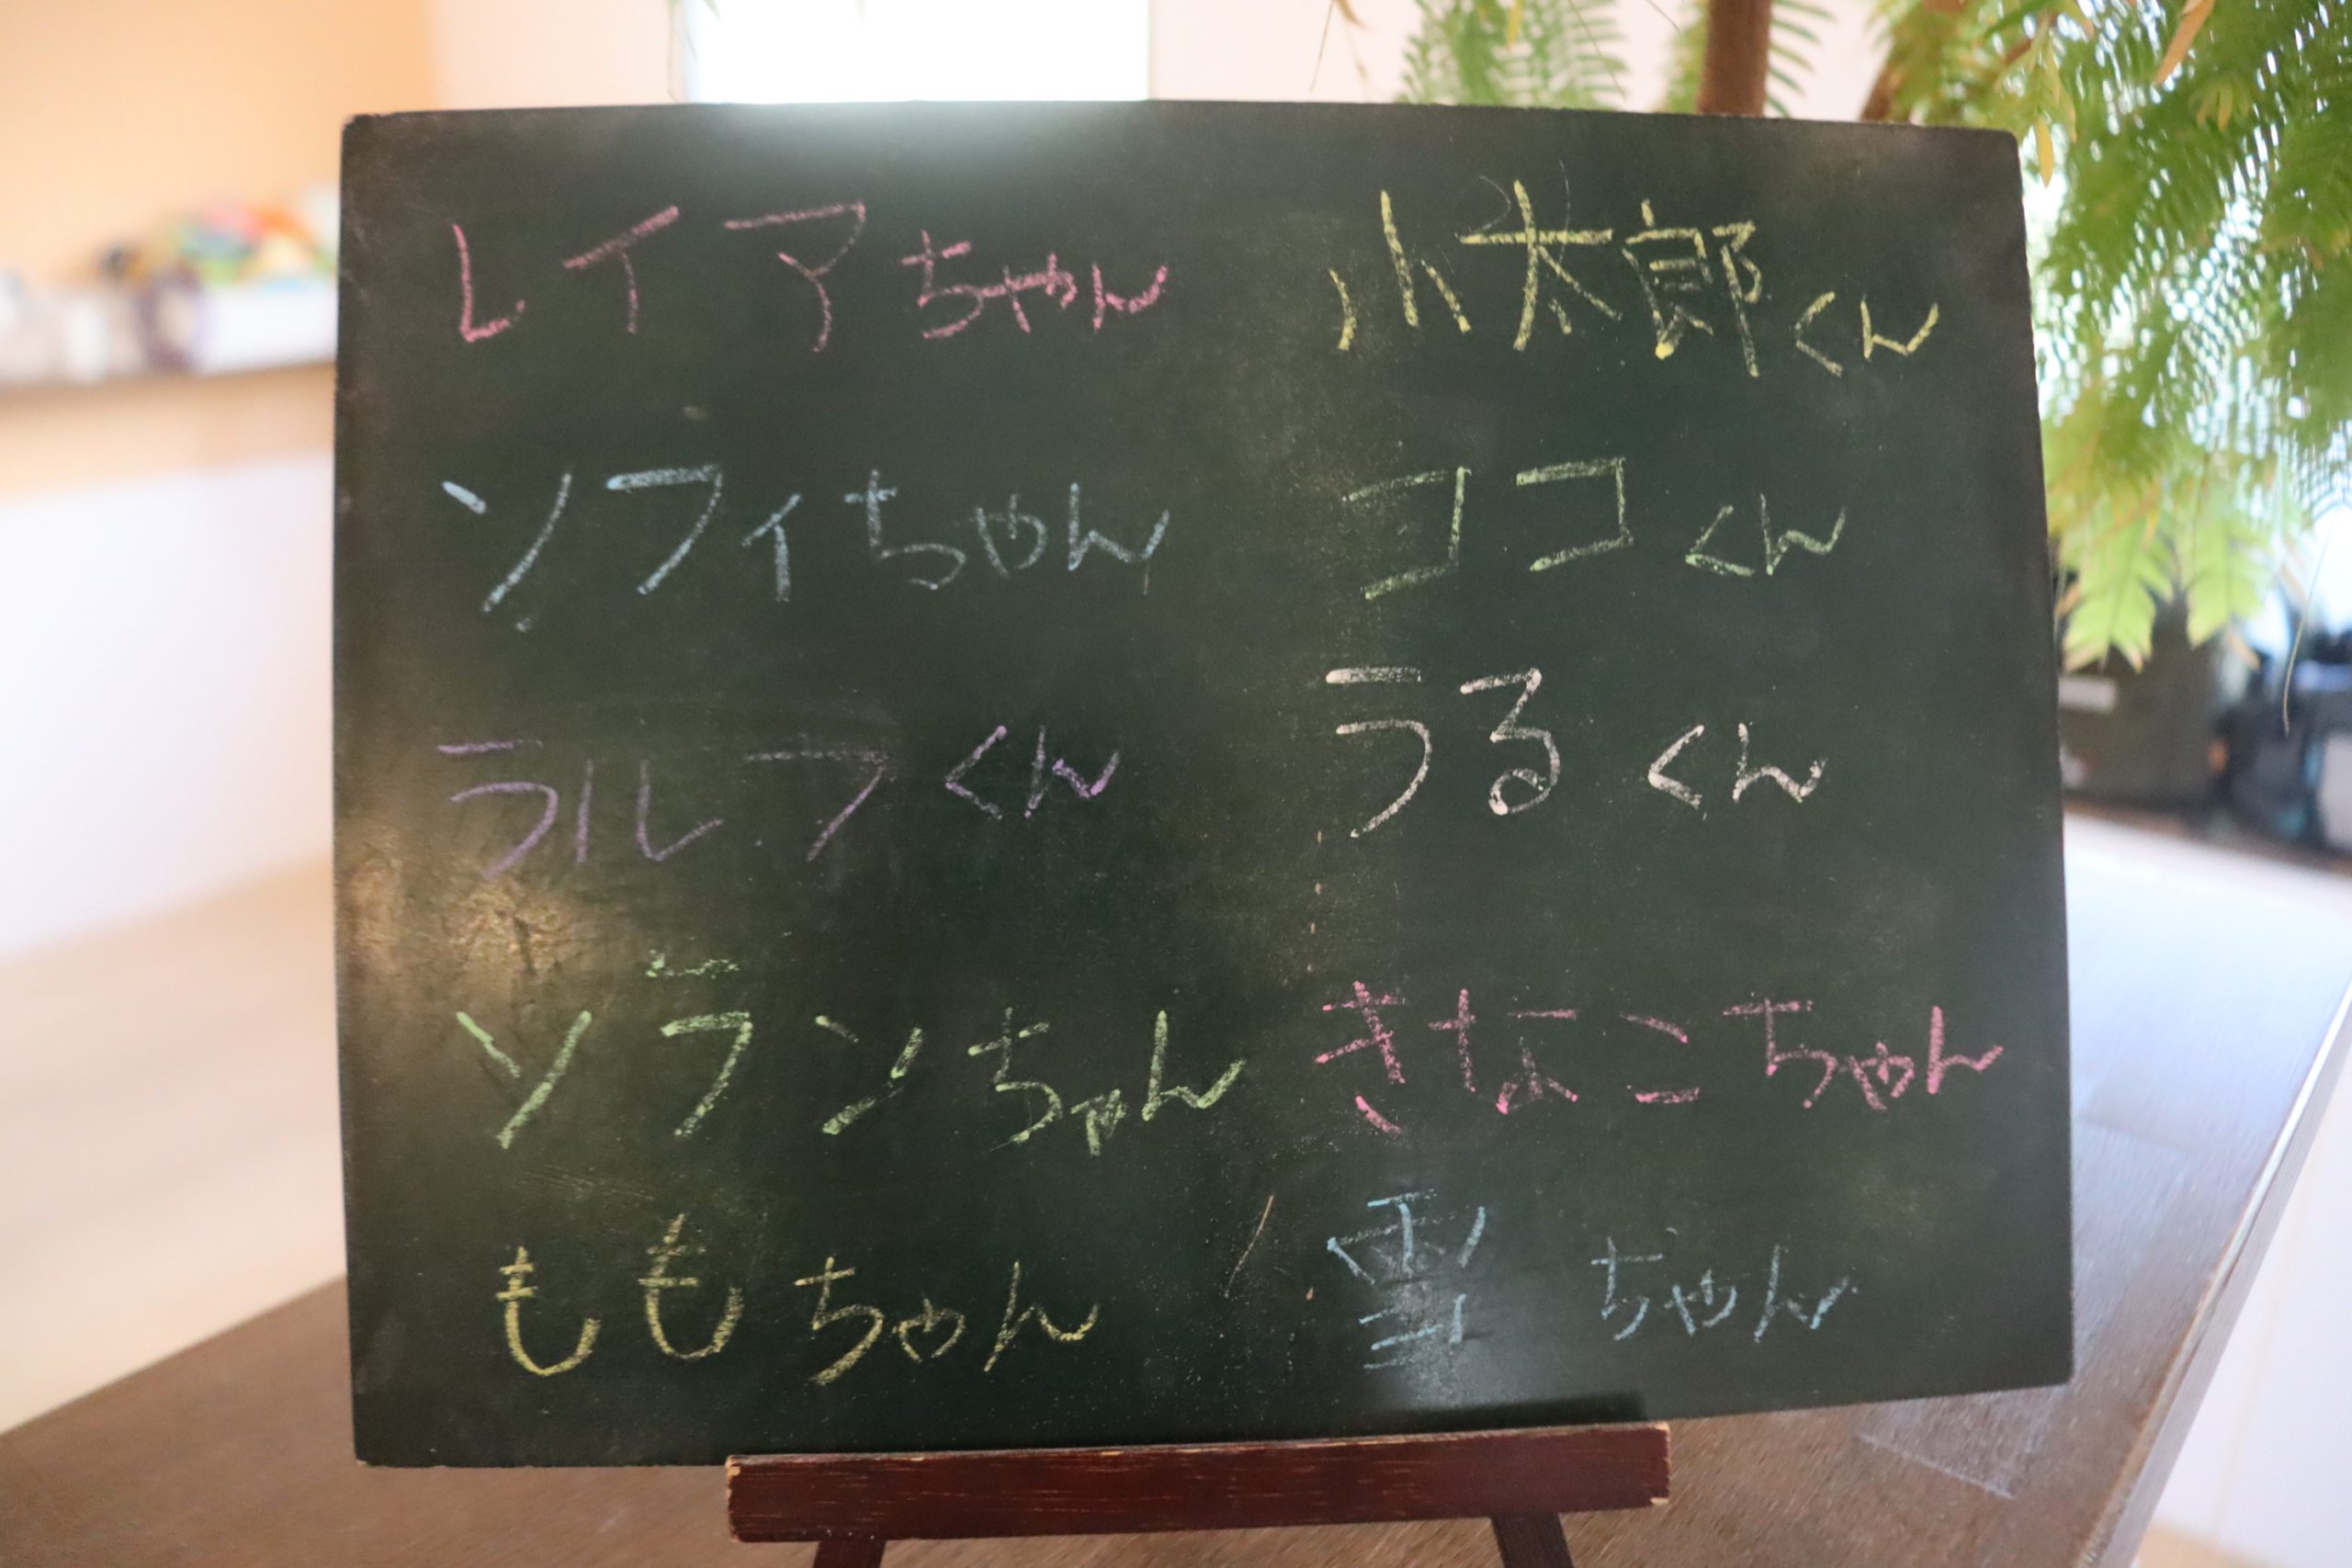 レイアちゃん
ソフィちゃん
ラルフくん
ソランちゃん
ももちゃん
小太郎くん
ココくん
うるくん
きなこちゃん
雪ちゃん